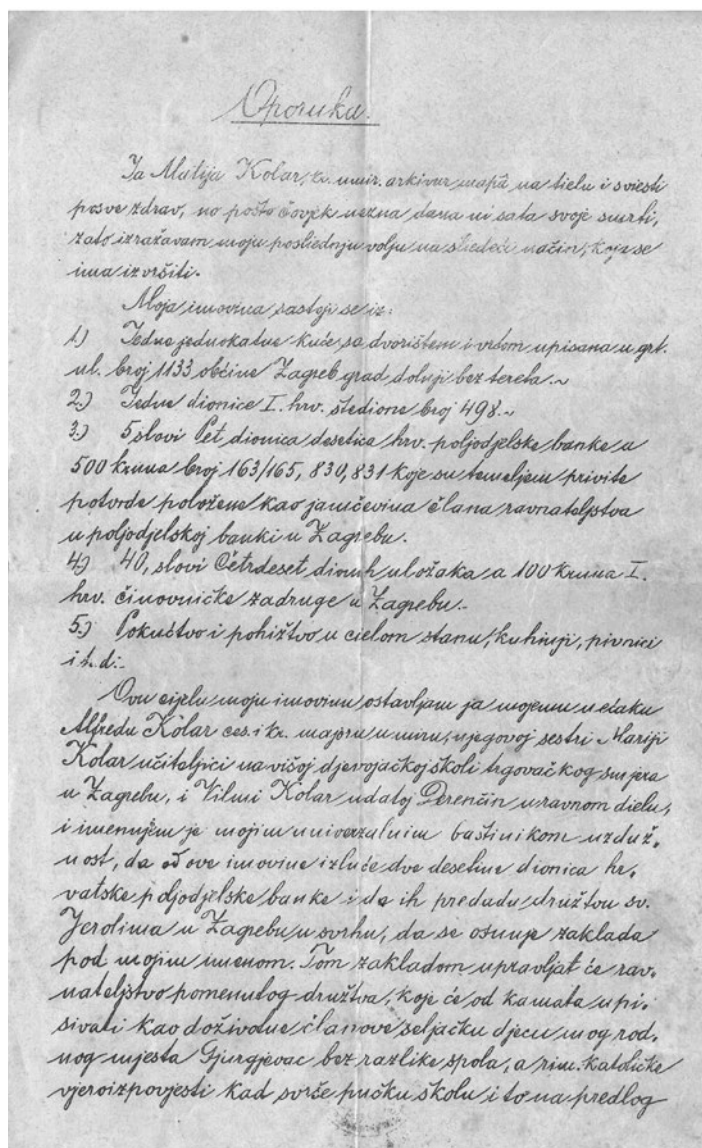 Oporuka.
Ja Matija Kolar, kr. umir. arkivar mapâ na tielu i sviesti
posve zdrav, no pošto čovjek nezna dana ni sata svoje smrti,
zato izražavam moju posliednju volju na sliedeći način, koja se
ima izvršiti.
Moja imovina sastoji se iz:
1.) Jedne jednokatne kuće sa dvorištem i vrtom upisana u grt.
ul. broj 1133 obćine Zagreb grad dolnji bez tereta.~
2.) Jedne dionice I. hrv. štedione broj 498.~
3.) 5 slovi Pet dionica desetica hrv. poljodjelske banke a
500 kruna broj 163/165, 830, 831 koje su temeljem privite
potvrde položene kao jamčevina člana ravnateljstva
u poljodjelskoj banki u Zagrebu.
4.) 40, slovi Četrdeset dionih uložaka a 100 kruna I.
hrv. činovničke zadruge u Zagrebu.-
5.) Pokućtvo i pohižtvo u cielom stanu, kuhinji, pivnici
i t. d:-
Ovu cijelu moju imovinu ostavljam ja mojemu nećaku
Alfredu Kolar ces. i kr. majoru u miru, njegovoj sestri Mariji
Kolar učiteljici na višoj djevojačkoj školi trgovačkog smjera
u Zagrebu, i Vilmi Kolar udatoj Derenčin u ravnom dielu,
i imenujem je mojim univerzalnim baštinikom uz duž-
nost, da od ove imovine izluče dve desetine dionica hr-
vatske poljodjelske banke i da ih predadu družtvu sv.
Jerolima u Zagrebu u svrhu, da se osnuje zaklada
pod mojim imenom. Tom zakladom upravljat će rav-
nateljstvo pomenutog družtva, koje će od kamata upi-
sivati kao doživotne članove seljačku djecu mog rod-
nog mjesta Gjurgjevac bez razlike spola, a rim. katoličke
vjeroizpovjesti kad svrše pučku školu i to na predlog